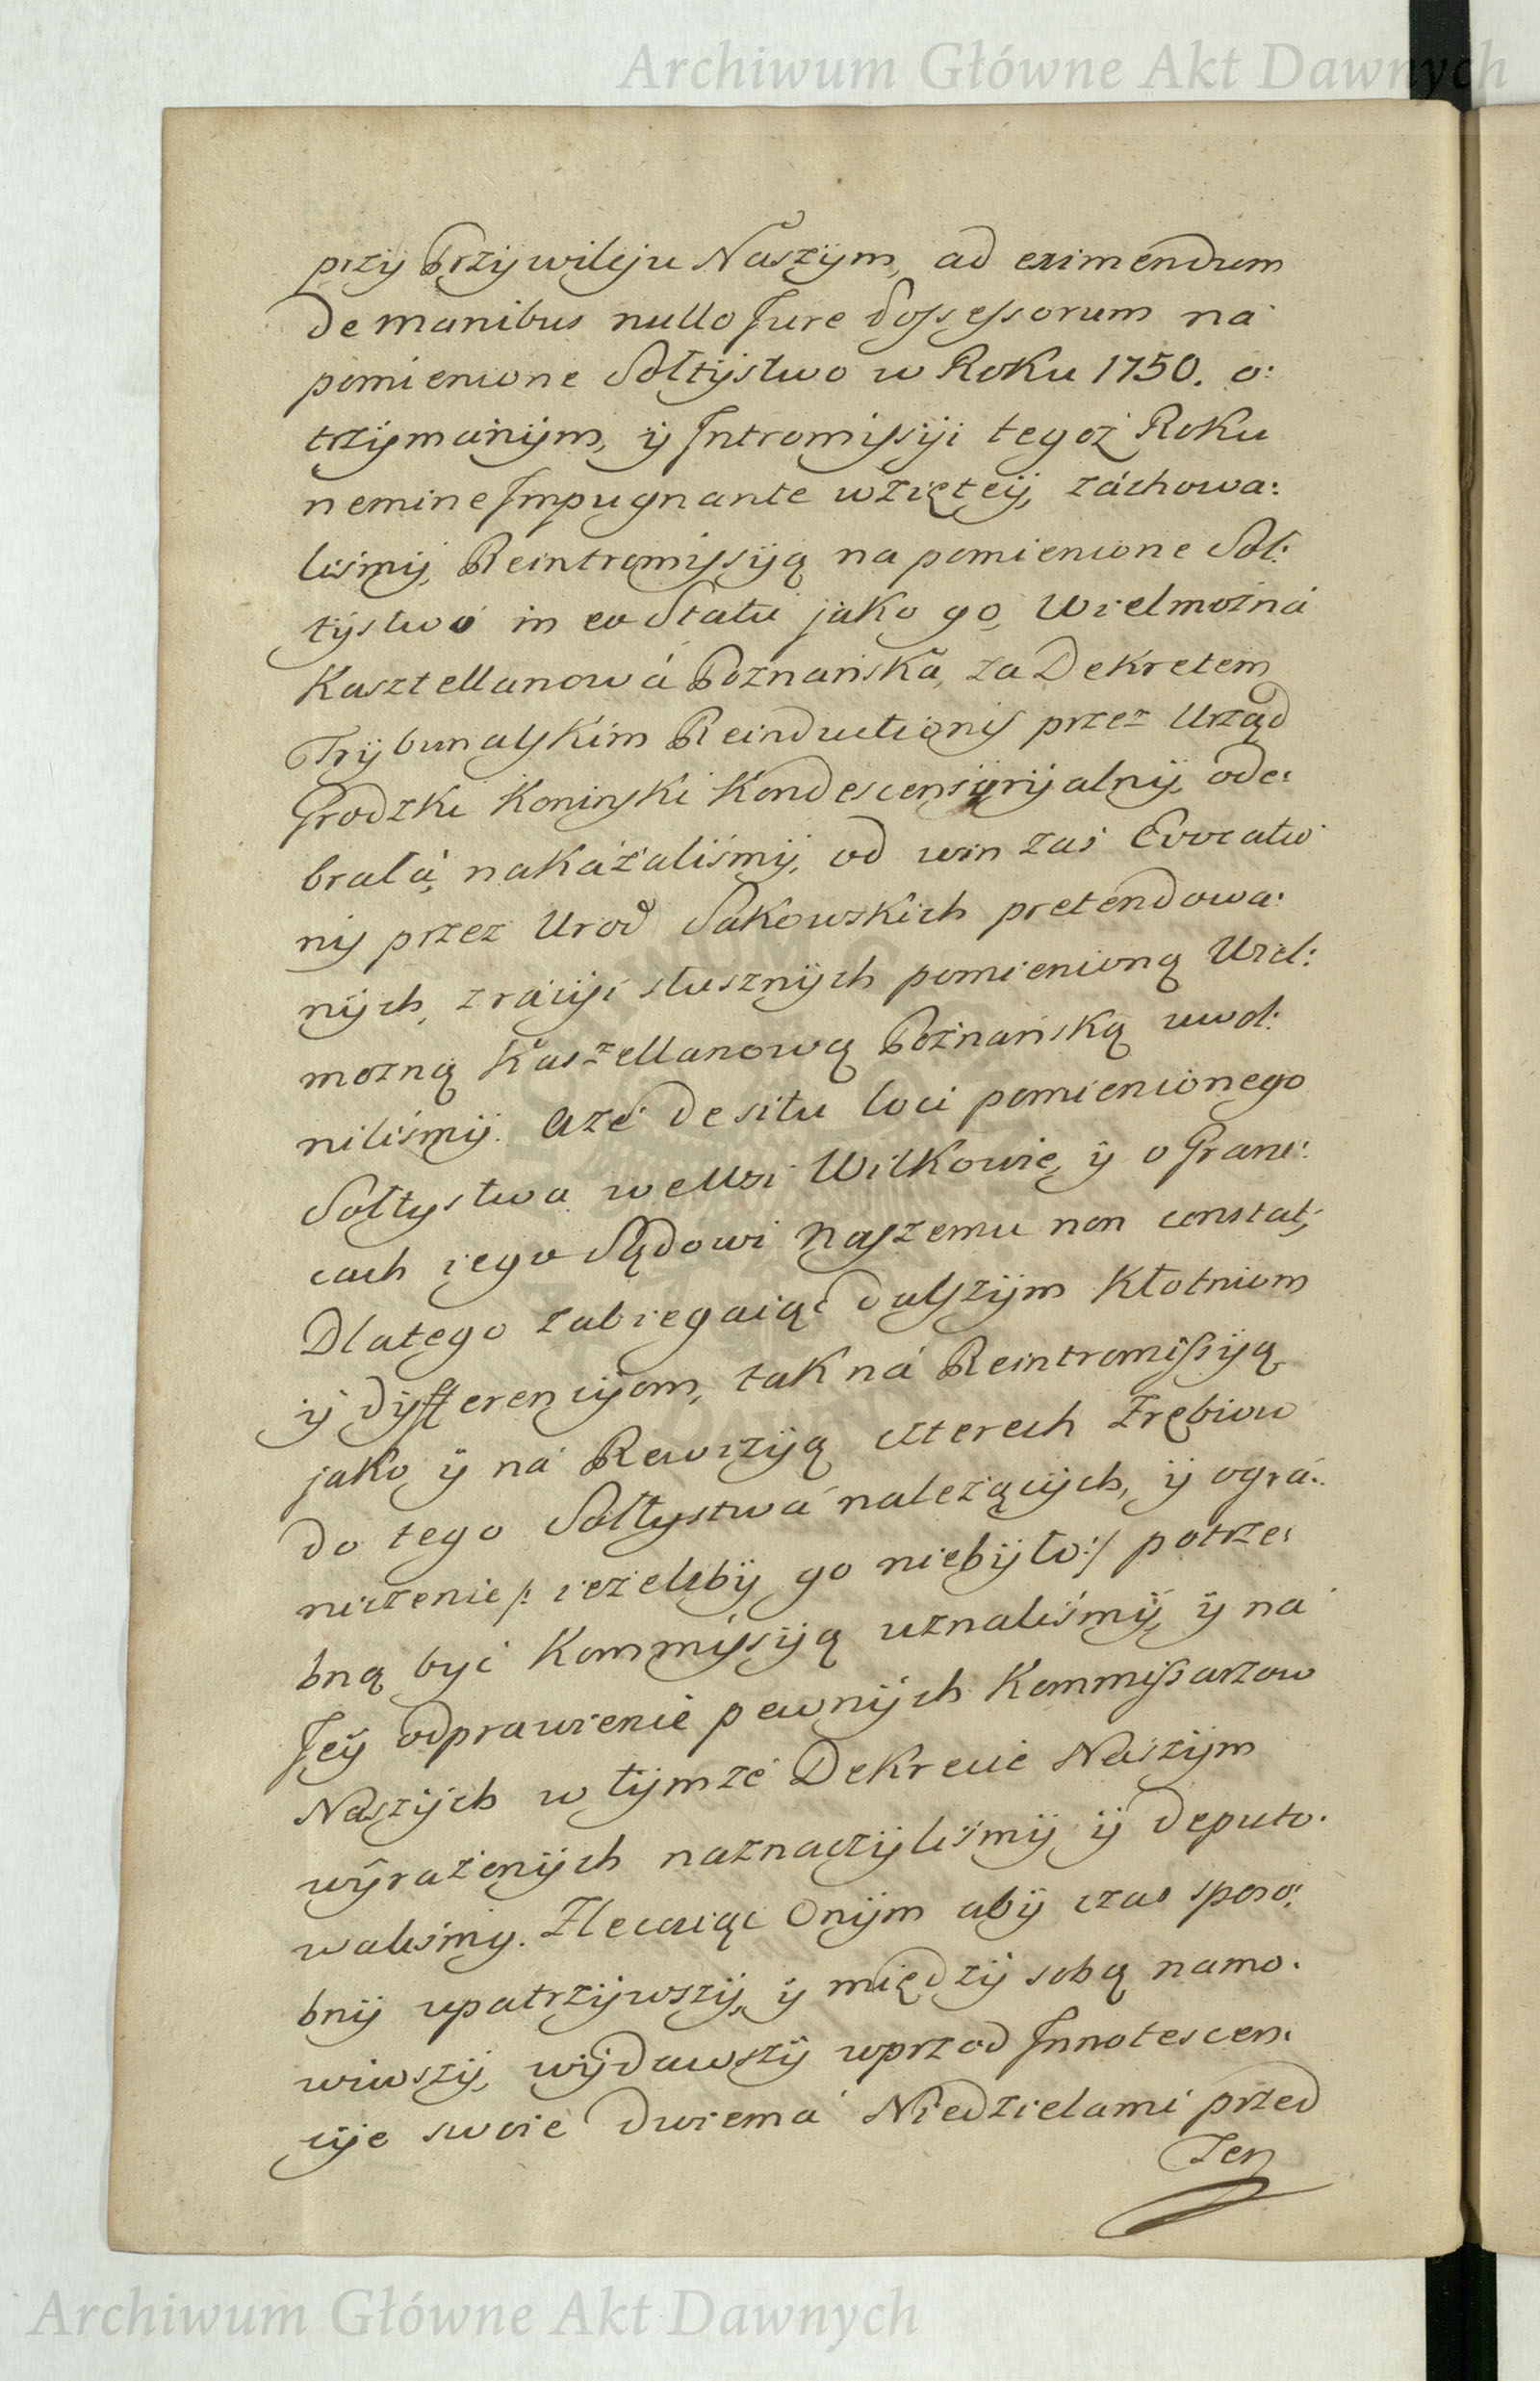 Archiwum Główne Akt Dawnych
przÿ Przÿwileju Naszÿm, ad eximendum
de manibus nullo Jure Possessorum na
pomienione Sołtÿstwo w Roku 1750. o:
trzÿmanÿm, ÿ Intromissÿi tegoż Roku
nemine Impugnante wzięteÿ, záchowa:
liśmÿ, Reintromissÿą na pomienione Soł:
tÿstwo in eo Statu jako go, Wielmożná
Kasztellanowá Poznańska, za Dekretem
Trÿbunalskim Reinductionis przez Urząd
Grodzki Koninski Kondescensÿrÿalnÿ, ode:
brałá, nakázaliśmÿ, od win zaś Evocatio
nis przez Urod Sakowskich pretendowa:
nÿch, z rácÿi słusznÿch pomienioną Wiel:
możną Kasztellanową Poznańską uwol:
niliśmÿ. Aże de situ loci pomienionego
Sołtystwa we Wsi Wilkowie, ÿ o Grani:
cach iego Sądowi Naszemu non constat,
Dlatego zabiegaiąc dalszÿm Kłotniom
ÿ dÿfferencÿom, tak ná Reintromissÿą
jako ÿ ná Rewizÿą czterech Zrębiow
do tego Sołtystwá należącÿch, ÿ ográ:
niczenie /: ieżelibÿ go niebÿło :/ potrze:
bną być Kommissÿą uznaliśmÿ, ÿ ná
Jeÿ odprawienie pewnÿch Kommissarzow
Naszÿch w tÿmże Dekrecie Naszÿm
wÿrażonÿch naznaczÿliśmÿ ÿ deputo.
waliśmy. Zlecaiąc Onÿm abÿ czas sposo:
bnÿ upatrzÿwszÿ, ÿ międzÿ sobą namo.
wiwszÿ, wÿdawszÿ wprzod Innotescen:
cÿe swoie dwiemá Niedzielami przed
Ten
Archiwum Główne Akt Dawnych